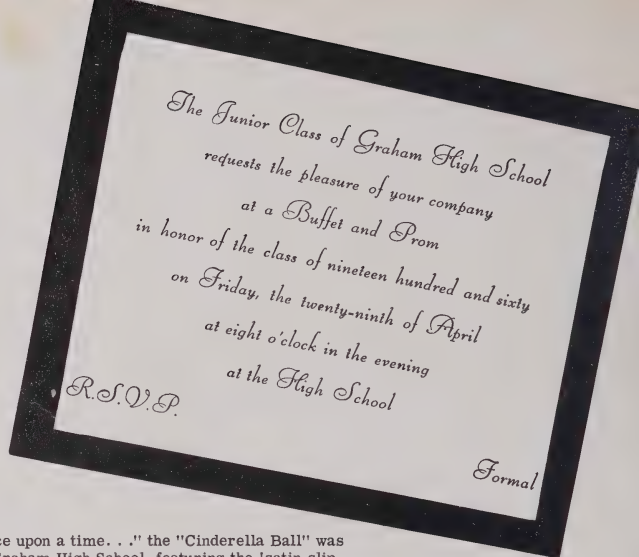 The Junior Class of Graham High School
requests the pleasure of your company
at a Buffet and Prom
in honor of the class of nineteen hundred and sixty
on Friday, the twenty-ninth of April
at eight o'clock in the evening
at the High School
R.S.V.P.
Formal
upon a time. . ." the "Cinderella Ball" was
High School, featuring the